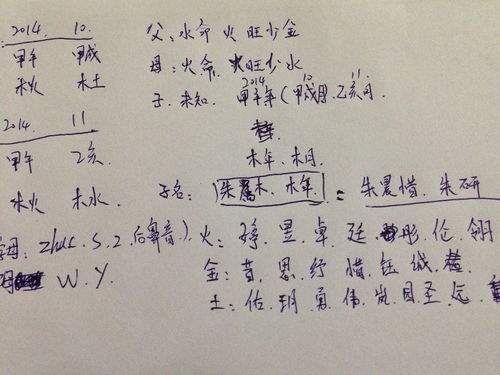 2014. 10.
甲午 甲戌
木火 木土
2014. 11
甲午 乙亥
木火 木水
父:水命 火旺少金
母:火命 火旺少水
子:未知. 2014 甲午年(10 甲戌月. 11 乙亥月.
木年. 木月
子名: 朱属木. 木年. = 朱晨惜. 朱研
字母: zhuc. s. z. 后鼻音) 火: 昱. 卓. 廷. 彤. 伦. 翎
W. Y. 金: 思. 纾. 惜. 钰. 城.
土: 佑. 玥. 勇. 伟. 岚. 圣. 远.